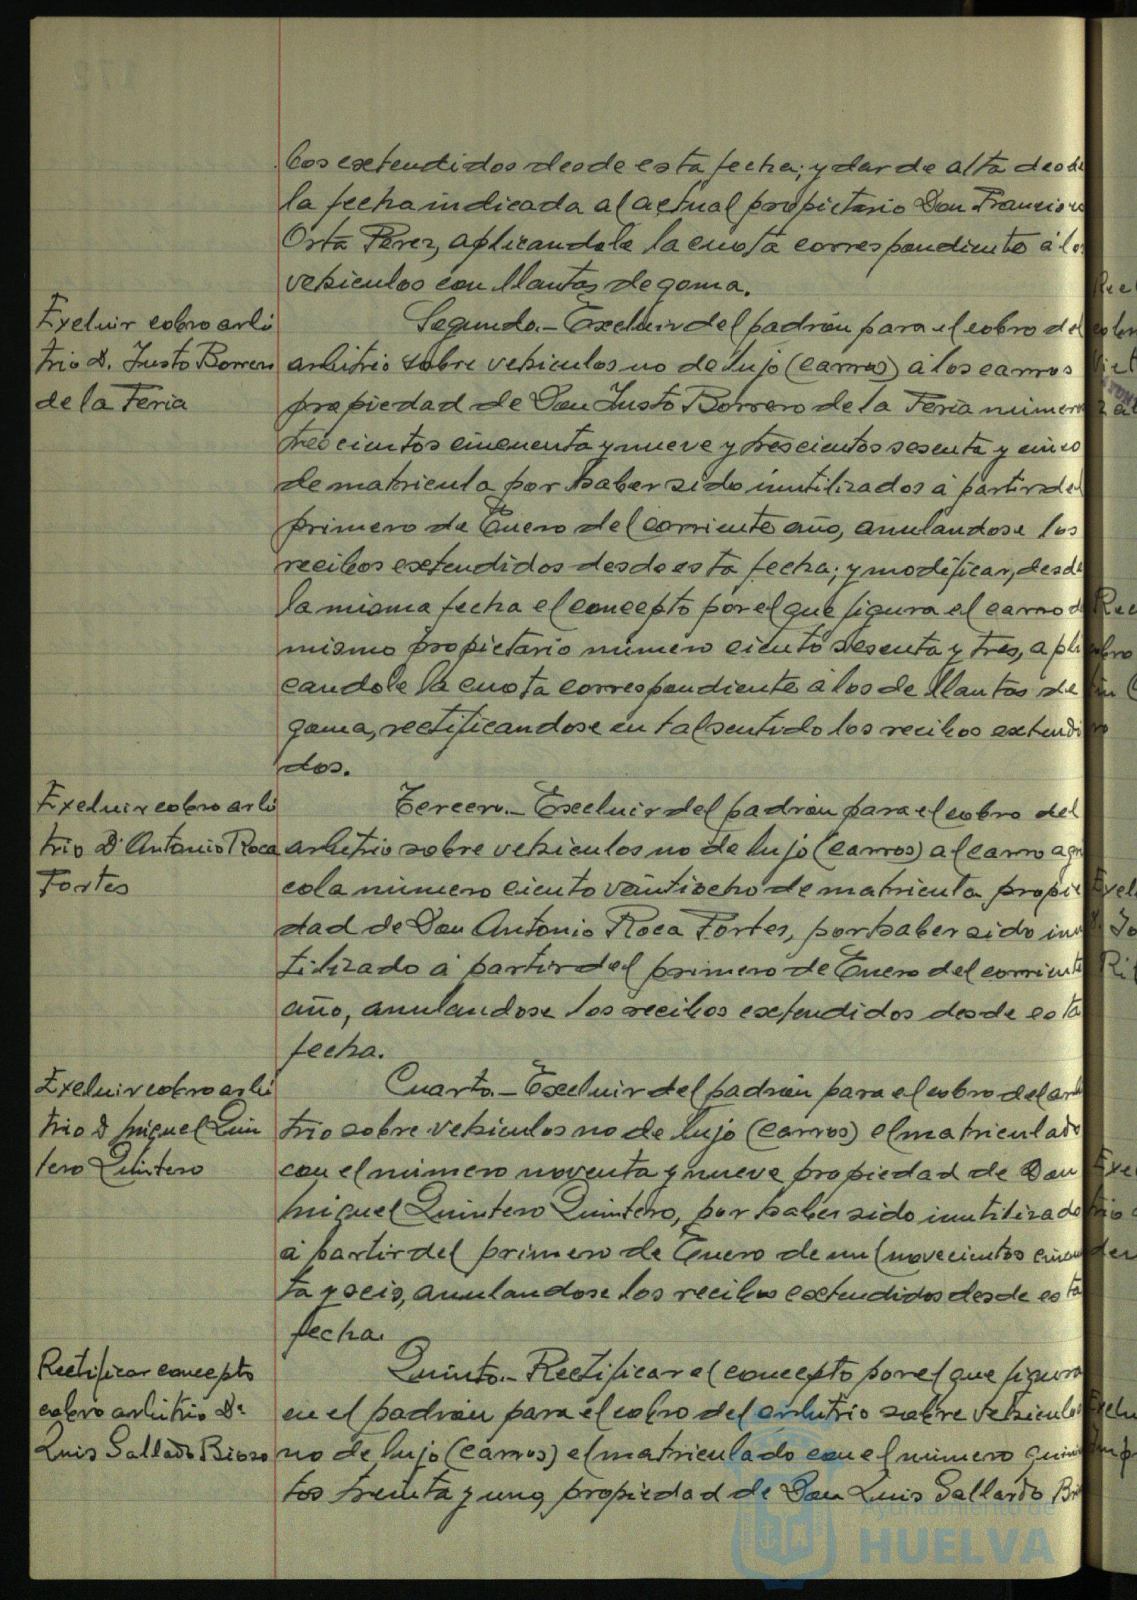 bos extendidos desde esta fecha; y dar de alta desde
la fecha indicada al actual propietario Don Francisco
Orta Perez, aplicandole la cuota correspondiente á los
vehiculos con llantas de goma.
Excluir cobro arbi
trio D. Justo Borrero
de la Feria
Segundo.- Excluir del padrón para el cobro del
arbitrio sobre vehiculos no de lujo (carros) á los carros
propiedad de Don Justo Borrero de la Feria numero
trescientos cincuenta y nueve y trescientos sesenta y cinco
de matricula por haber sido inutilizados á partir del
primero de Enero del corriente año, anulandose los
recibos extendidos desde esta fecha; y modificar, desde
la misma fecha el concepto por el que figura el carro del
mismo propietario numero ciento sesenta y tres, apli
candole la cuota correspondiente á los de llantas de
goma, rectificandose en tal sentido los recibos extendi
dos.
Excluir cobro arbi
trio D. Antonio Roca
Fortes
Tercero.- Excluir del padrón para el cobro del
arbitrio sobre vehiculos no de lujo (carros) al carro agri
cola numero ciento veintiocho de matricula propie
dad de Don Antonio Roca Fortes, por haber sido inu
tilizado á partir del primero de Enero del corriente
año, anulandose los recibos extendidos desde esta
fecha.
Excluir cobro arbi
trio D Miguel Quin
tero Quintero
Cuarto.- Excluir del padrón para el cobro del arbi
trio sobre vehiculos no de lujo (carros) el matriculado
con el número noventa y nueve propiedad de Don
Miguel Quintero Quintero, por haber sido inutilizado
á partir del primero de Enero de mil novecientos cincuen
ta y seis, anulandose los recibos extendidos desde esta
fecha.
Rectificar concepto
cobro arbitrio Dn
Luis Gallardo Bioso
Quinto.- Rectificar el concepto por el que figura
en el padrón para el cobro del arbitrio sobre vehiculos
no de lujo (carros) el matriculado con el número quinien
tos treinta y uno, propiedad de Don Luis Gallardo
Ayuntamiento de
HUELVA